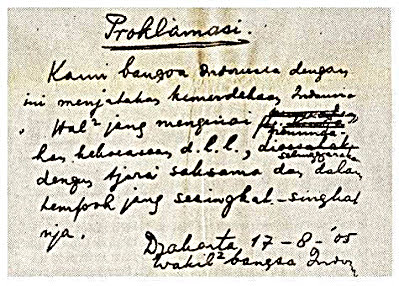 Proklamasi.
Kami bangsa Indonesia dengan
ini menjatakan kemerdekaan Indones
Hal² jang mengenai
pemindahan
kekoeasaan d.l.l., diselenggarakan
dengan tjara saksama dan dalam
tempoh jang sesingkat-singkat
nja.
Djakarta 17-8-'05
Wakil² bangsa Indon